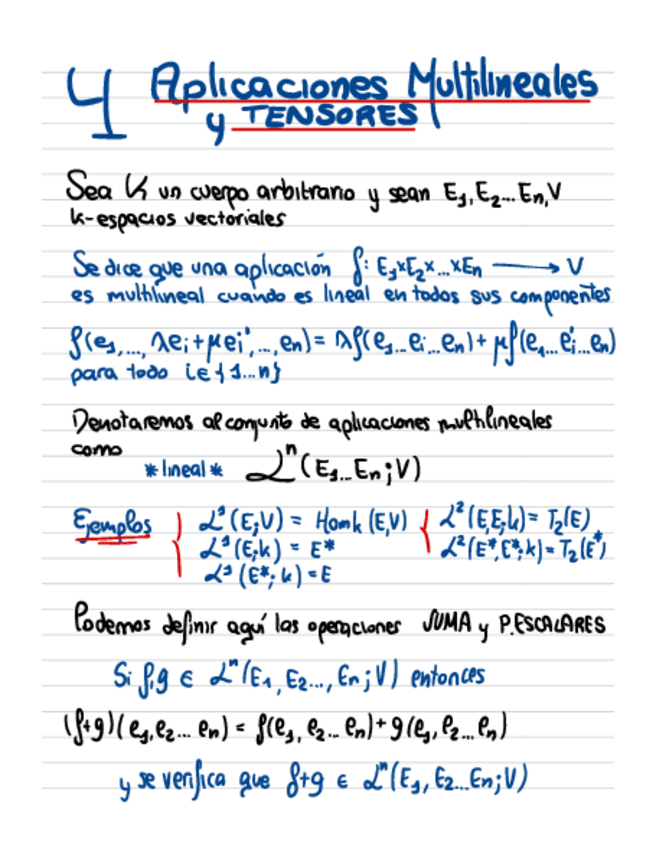 4 Aplicaciones Multilineales
y TENSORES
Sea K un cuerpo arbitrario y sean E₁, E₂... En, V
k-espacios vectoriales
Se dice que una aplicación f: E₁×E₂×...×En → V
es multilineal cuando es lineal en todos sus componentes
f(e₁,..., λei+μei',...,en) = λf(e₁...ei...en) + μf(e₁...ei'...en)
para todo i∈{1...n}
Denotaremos al conjunto de aplicaciones multilineales
como
*lineal* ℒⁿ(E₁...En;V)
Ejemplos { ℒ¹(E;V) = Homk (E,V) { ℒ²(E,E;k) = T₂(E)
ℒ¹(E;k) = E* ℒ²(E*,E*;k) = T₂(E*)
ℒ¹(E*;k) = E
Podemos definir aquí las operaciones SUMA y P.ESCALARES
Si f,g ∈ ℒⁿ(E₁, E₂..., En;V) entonces
(f+g)(e₁,e₂... en) = f(e₁, e₂... en) + g(e₁, e₂... en)
y se verifica que f+g ∈ ℒⁿ(E₁, E₂...En;V)